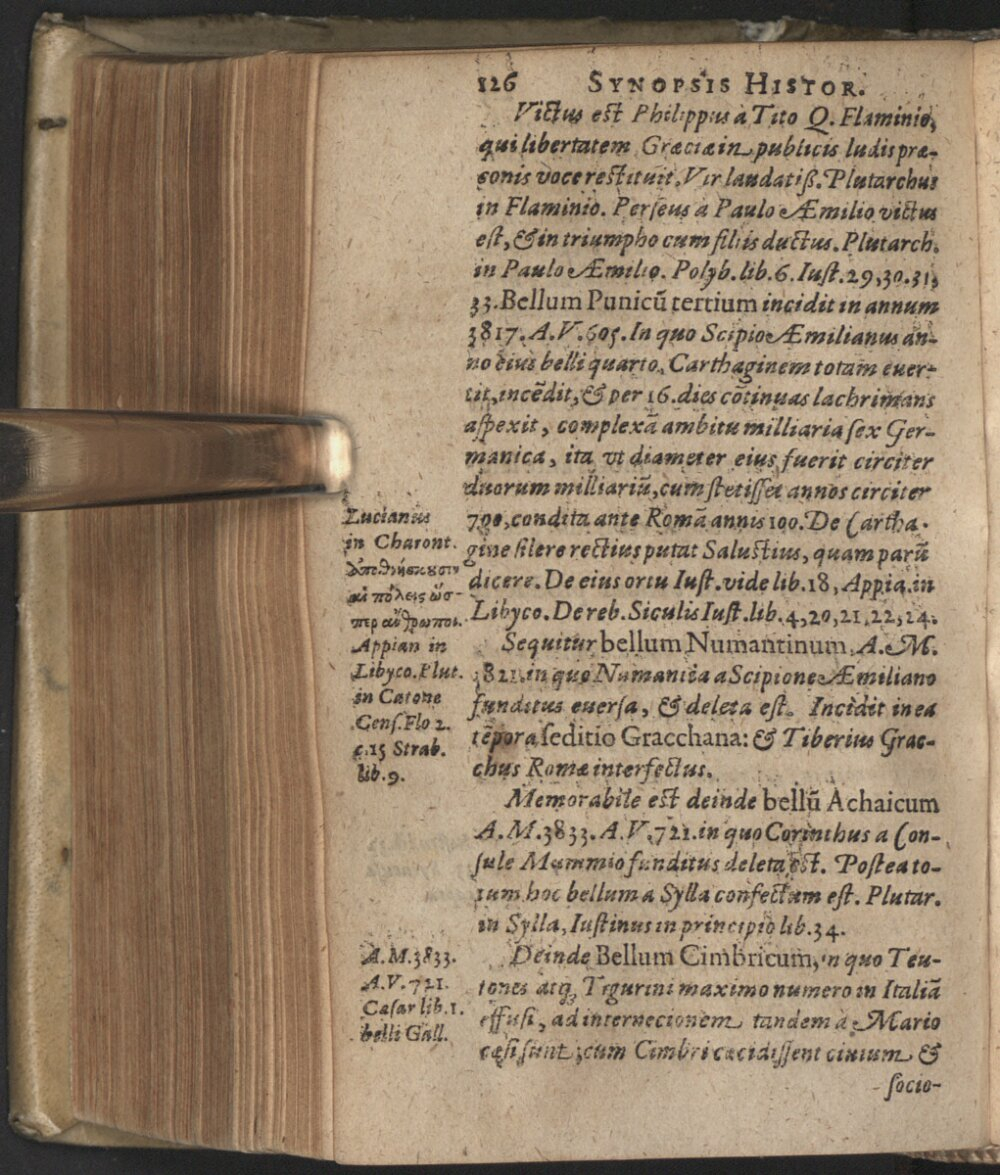 126 SYNOPSIS HISTOR.
Victus est Philippus à Tito Q. Flaminio,
qui libertatem Græciæ in publicis ludis præ-
conis voce restituit. Vir laudatiß. Plutarchus
in Flaminio. Perseus à Paulo Æmilio victus
est, & in triumpho cum filiis ductus. Plutarch.
in Paulo Æmilio. Polyb. lib. 6. Iust. 29, 30. 31,
33. Bellum Punicū tertium incidit in annum
3817. A. V. 605. In quo Scipio Æmilianus an-
no eius belli quarto, Carthaginem totam euer-
tit, incēdit, & per 16. dies cōtinuas lachrimans
aspexit, complexā ambitu milliaria sex Ger-
manica, ita vt diameter eius fuerit circiter
duorum milliariū, cum stetisset annos circiter
700, condita ante Romā annis 100. De Cartha-
gine silere rectius putat Salustius, quam parū
dicere. De eius ortu Iust. vide lib. 18, Appiā. in
Libyco. De reb. Siculis Iust. lib. 4, 20, 21, 22, 24.
Sequitur bellum Numantinum, A. M.
3821. in quo Numantia a Scipione Æmiliano
funditus euersa, & deleta est. Incidit in ea
tēpora seditio Gracchana: & Tiberius Grac-
chus Romæ interfectus.
Memorabile est deinde bellū Achaicum
A. M. 3833. A. V. 721. in quo Corinthus a Con-
sule Mummio funditus deleta est. Postea to-
tum hoc bellum a Sylla confectum est. Plutar.
in Sylla, Iustinus in principio lib. 34.
Deinde Bellum Cimbricum, in quo Teu-
tones atq; Tigurini maximo numero in Italiā
effusi, ad internecionem tandem à Mario
cæsi sunt, cum Cimbri cecidissent ciuium &
socio-
Lucianus
in Charont.
ἀποθνήσκουσιν
καὶ πόλεις ὥσ-
περ ἄνθρωποι.
Appian in
Libyco. Plut.
in Catone
Cens. Flo 2.
c. 15 Strab.
lib. 9.
A. M. 3833.
A. V. 721.
Cæsar lib. 1.
belli Gall.